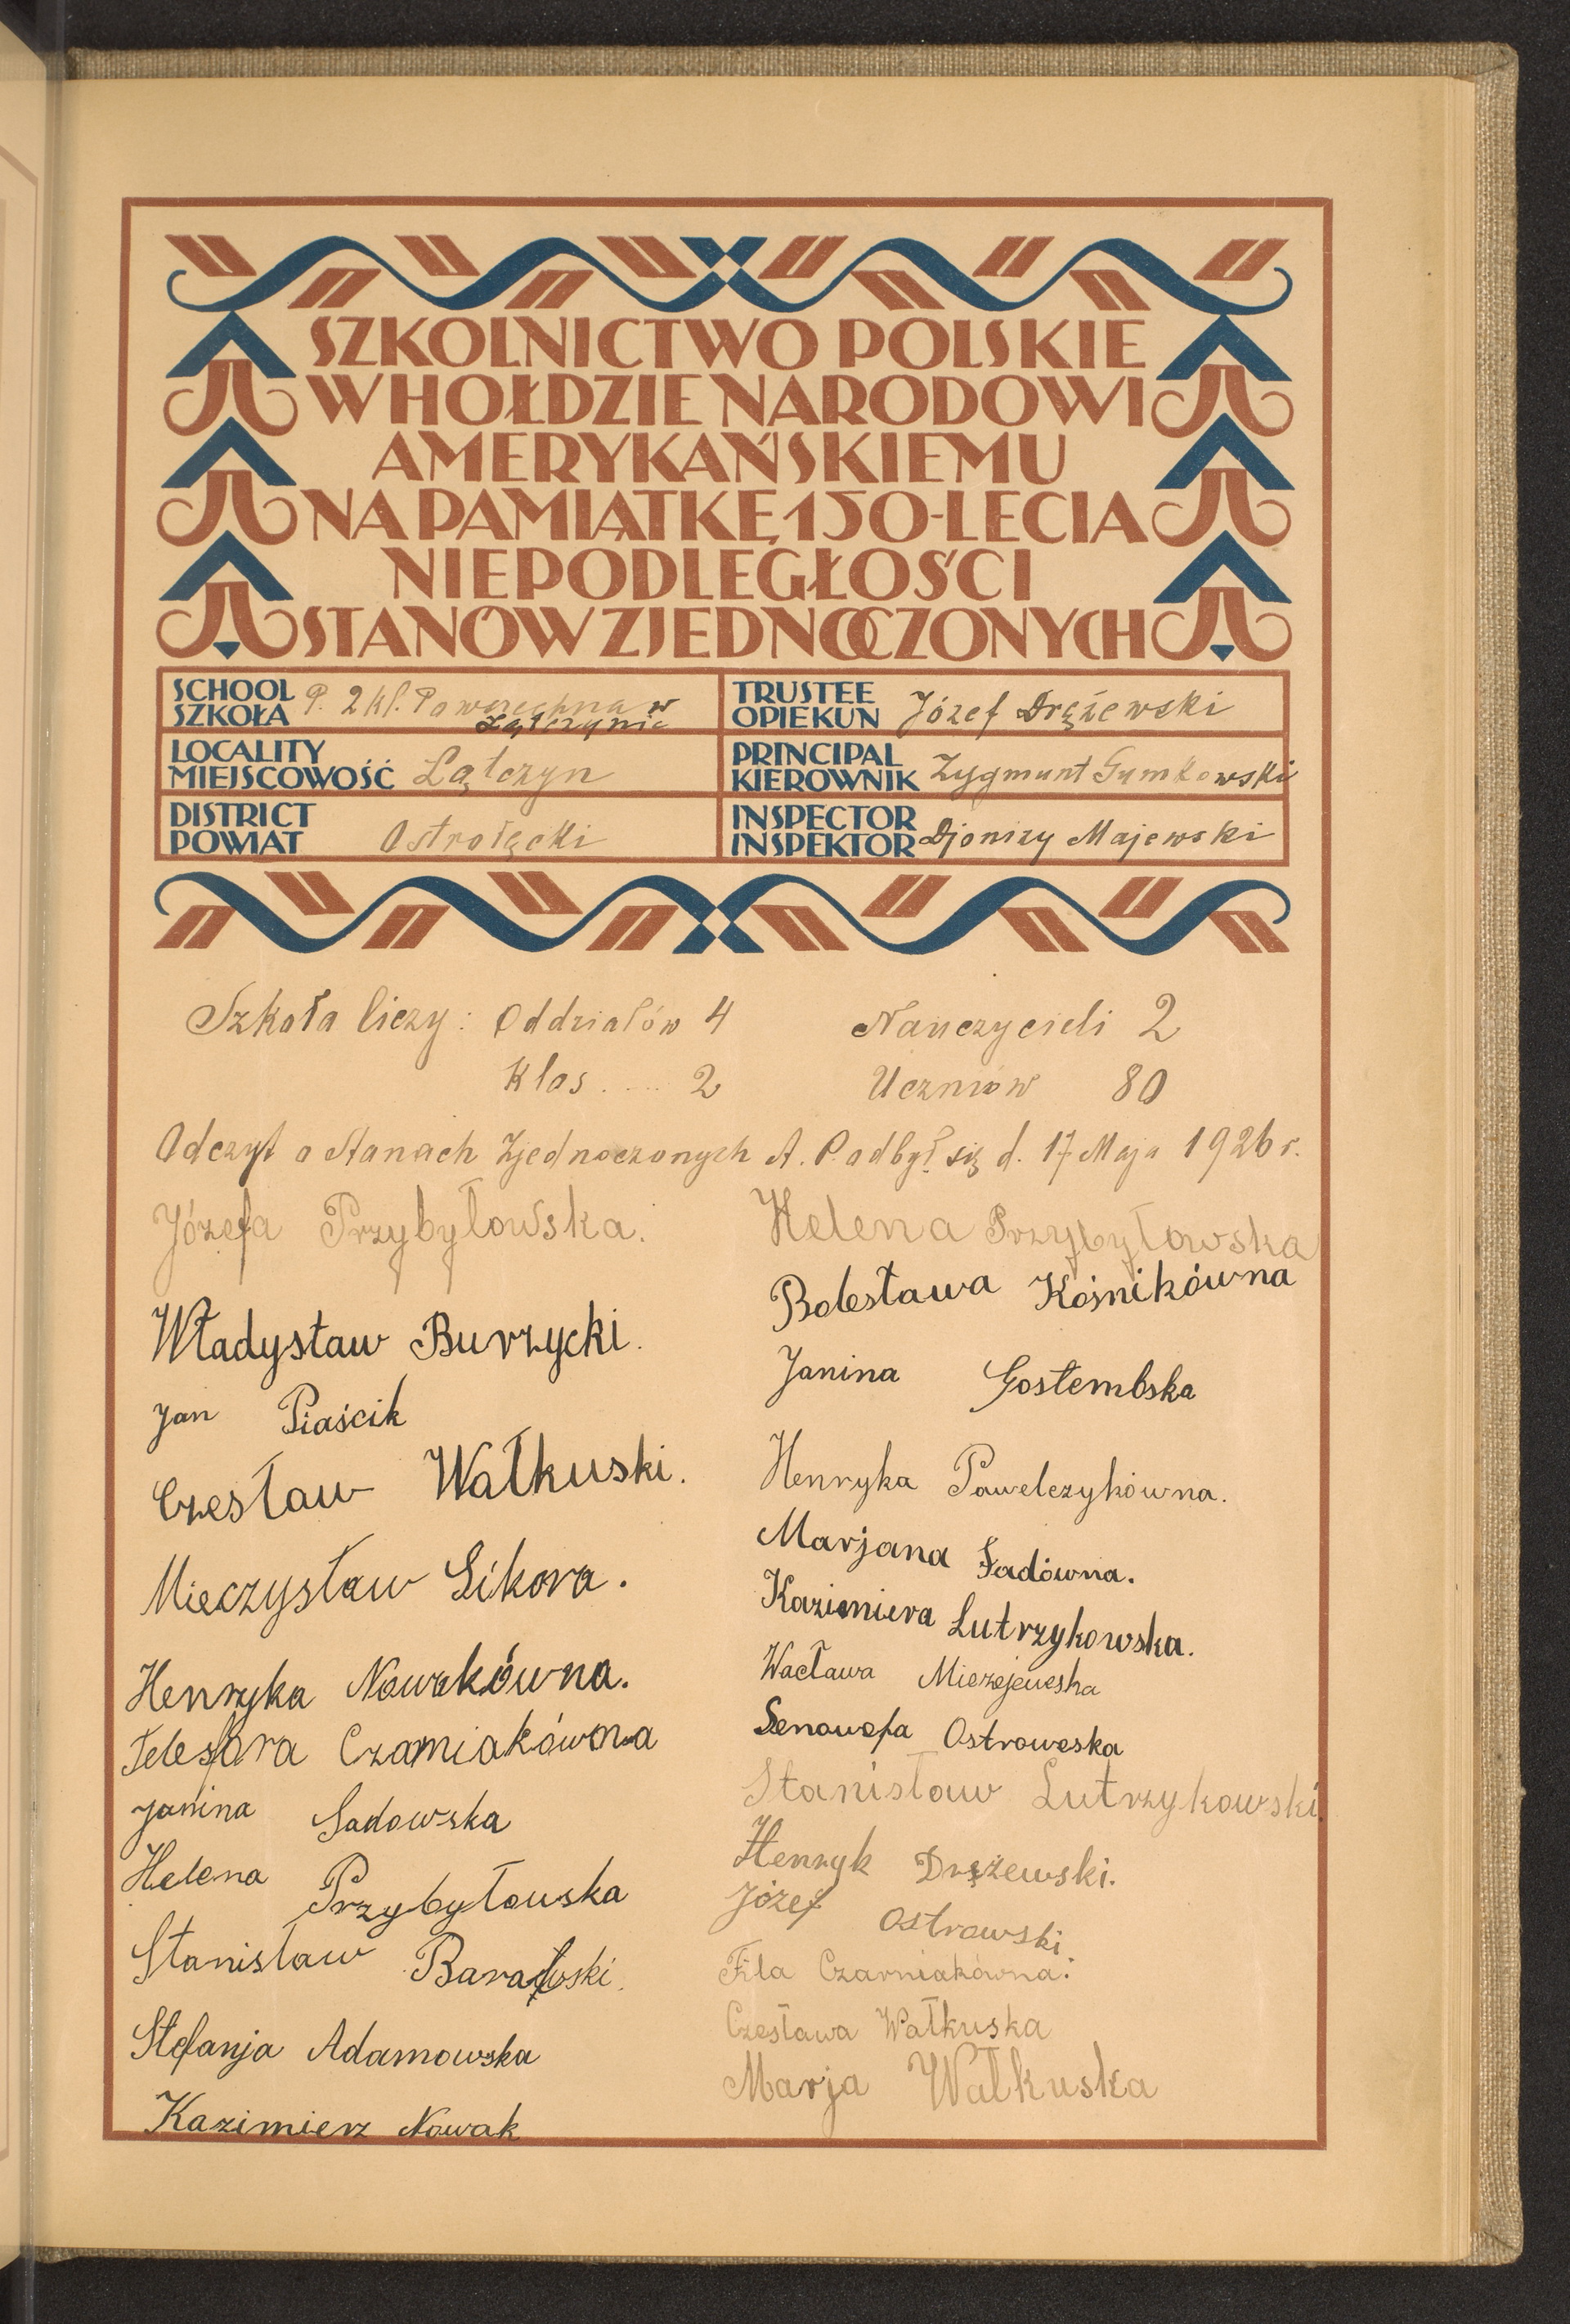 SZKOLNICTWO POLSKIE
W HOŁDZIE NARODOWI
AMERYKAŃSKIEMU
NA PAMIĄTKĘ 150-LECIA
NIEPODLEGŁOŚCI
STANÓW ZJEDNOCZONYCH
SCHOOL
SZKOŁA P. 2 kl. Powszechna w
LOCALITY
MIEJSCOWOŚĆ Łątczyn
DISTRICT
POWIAT Ostrołęcki
TRUSTEE
OPIEKUN Józef Drężewski
PRINCIPAL
KIEROWNIK Zygmunt Gumkowski
INSPECTOR
INSPEKTOR Djonizy Majewski
Szkoła liczy: Oddziałów 4 Nauczycieli 2
Klas .... 2 Uczniów 80
Odczyt o Stanach Zjednoczonych A. P. odbył się d. 17 Maja 1926 r.
Józefa Przybyłowska.
Władysław Burzycki.
Jan Piaścik
Czesław Wałkuski.
Mieczysław Sikora.
Henryka Nowakówna.
Telesfora Czarniakówna
Janina Sadowska
Helena Przybyłowska
Stanisław
Stefanja Adamowska
Kazimierz Nowak
Helena Przybyłowska
Bolesława Kośnikówna
Janina Gostembska
Henryka Pawelczykówna.
Marjana
Kazimiera Lutrzykowska.
Wacława Mierzejewska
Ostrowska
Stanisław Lutrzykowski.
Henryk Drężewski.
Józef Ostrowski.
Fila Czarniakówna.
Czesława Wałkuska
Marja Wałkuska